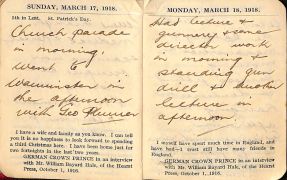 SUNDAY, MARCH 17, 1918.
5th in Lent. St. Patrick's Day.
Church parade
in morning.
Went to
Warminster in
the afternoon
with Geo
I have a wife and family as you know. I can tell
you it is no happiness to look forward to spending
a third Christmas here. I have been home just for
two fortnights in the last two years.
GERMAN CROWN PRINCE in an interview
with Mr. William Bayard Hale, of the Hearst
Press, October 1, 1916.
MONDAY, MARCH 18, 1918.
Had lecture &
gunnery & some
director work
in morning &
standing gun
drill & another
lecture in
afternoon.
I myself have spent much time in England,
and have had—I must still have many friends in
England.
GERMAN CROWN PRINCE in an interview
with Mr. William Bayard Hale, of the Hearst
Press, October 1, 1916.